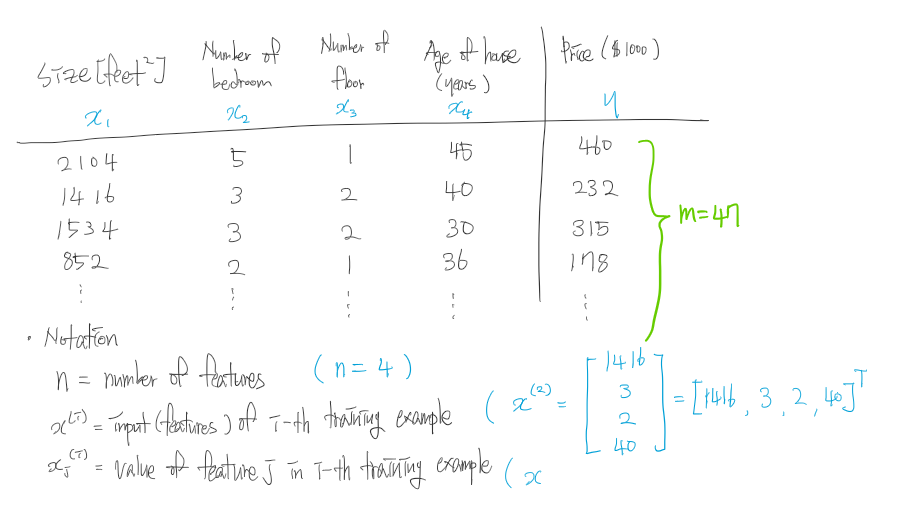 Size [feet²] Number of bedroom Number of floor Age of house (years) Price ($1000)
x₁ x₂ x₃ x₄ y
2104 5 1 45 460
1416 3 2 40 232
1534 3 2 30 315
852 2 1 36 178
⋮ ⋮ ⋮ ⋮ ⋮
m=47
· Notation
n = number of features (n=4)
x⁽ⁱ⁾ = input (features) of i-th training example (x⁽²⁾ = [1416 3 2 40] = [1416, 3, 2, 40]ᵀ
xⱼ⁽ⁱ⁾ = value of feature j in i-th training example (x